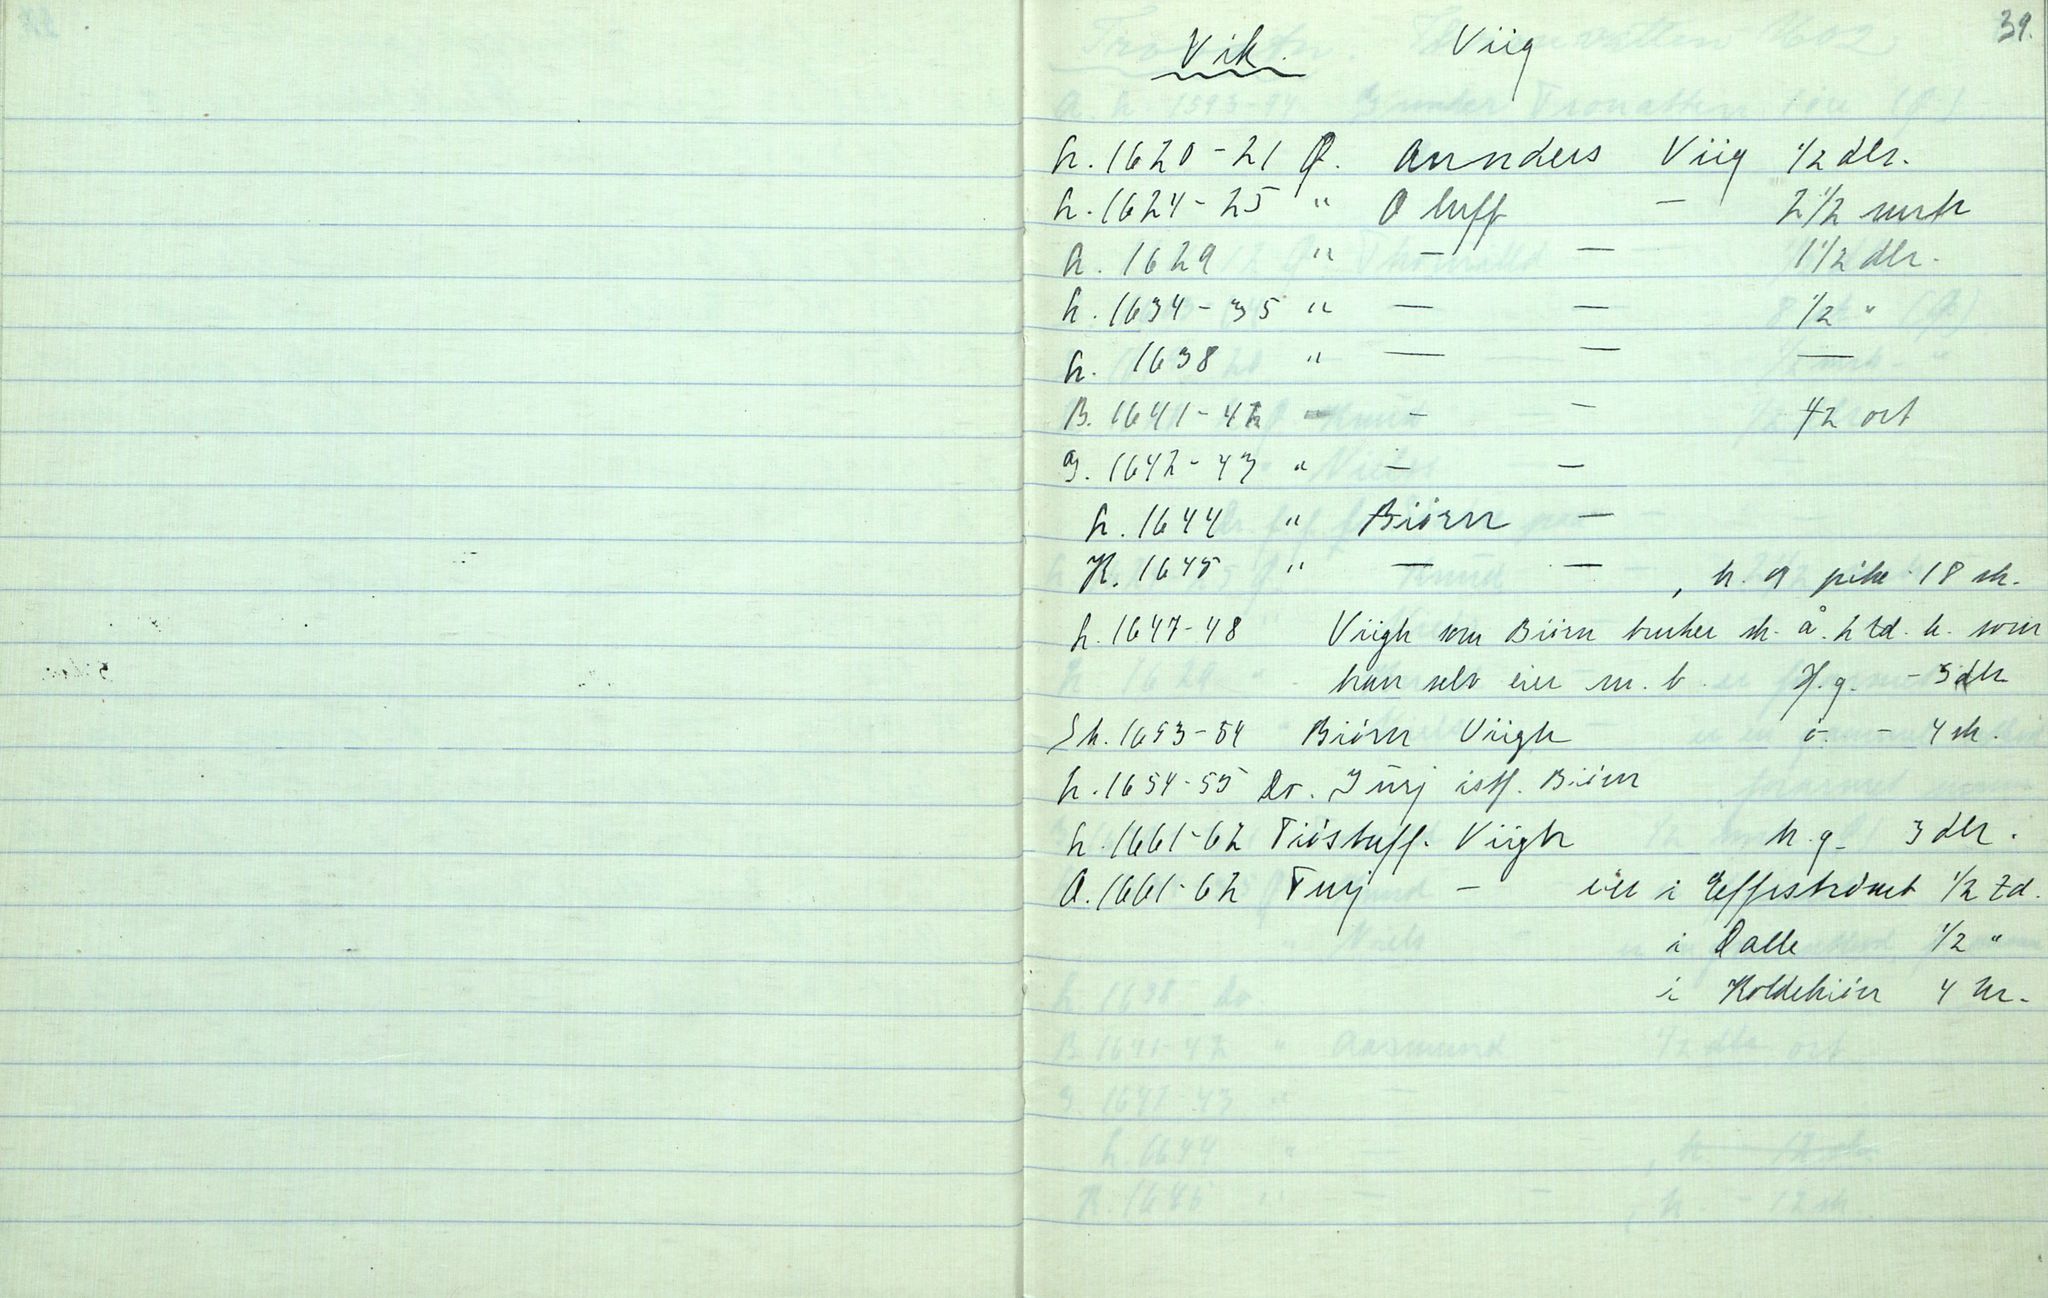 39.
Vik. Viig
h. 1620-21 Q. Annders Viig 1/2 dlr.
h. 1624-25 " Oluff — 2 1/2 mrk
h. 1629 " — — 1 1/2 dlr.
h. 1634-35 " — — 1/2 "
h. 1638 " — — —
B. 1641-42 " — — 1/2 ort
1642-43 " — —
h. 1644 " Biörn —
K. 1645 " — — , h. og pike 18 sk.
h. 1647-48 Viigh som Biörn bruker sk. å. h td. k. som
han selv eier m. b. H.g. - 3 dlr
Sk. 1653-54 Biörn Viigh ö. - 4 sk.
h. 1654-55 Do. Turj istf. Biörn
h. 1661-62 Tiöstuff. Viigh h.g. 3 dlr.
A. 1661-62 Turj — eier i Effiströmt 1/2 td.
i Dalle 1/2 "
i Koldekiörr 4 hr.